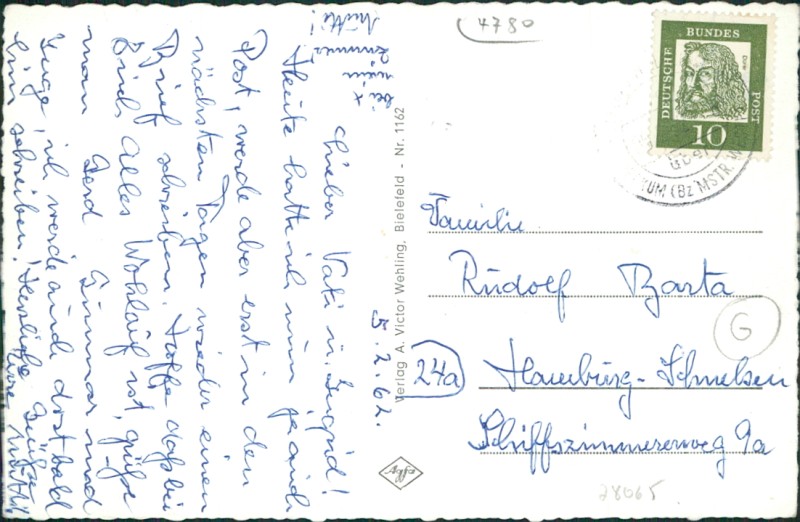 5.2.62.
Lieber Vati u. Ingrid!
Heute hatte ich nun ja auch
Post, werde aber erst in den
nächsten Tagen wieder einen
Brief schreiben. Hoffe daß bei
Euch alles Wohlauf ist, grüße
man Gerd und
Inge, ich werde auch dort bald
hin schreiben! Herzliche Grüße
Eure Mutti
Mutti!
Verlag A. Victor Wehling, Bielefeld - Nr. 1162
efbe
4780
DEUTSCHE BUNDESPOST
Dürer
10
(Bz MSTR. W
Familie
Rudolf Barta
24a Hamburg-Schnelsen
Schiffszimmererweg 9a
G
28065